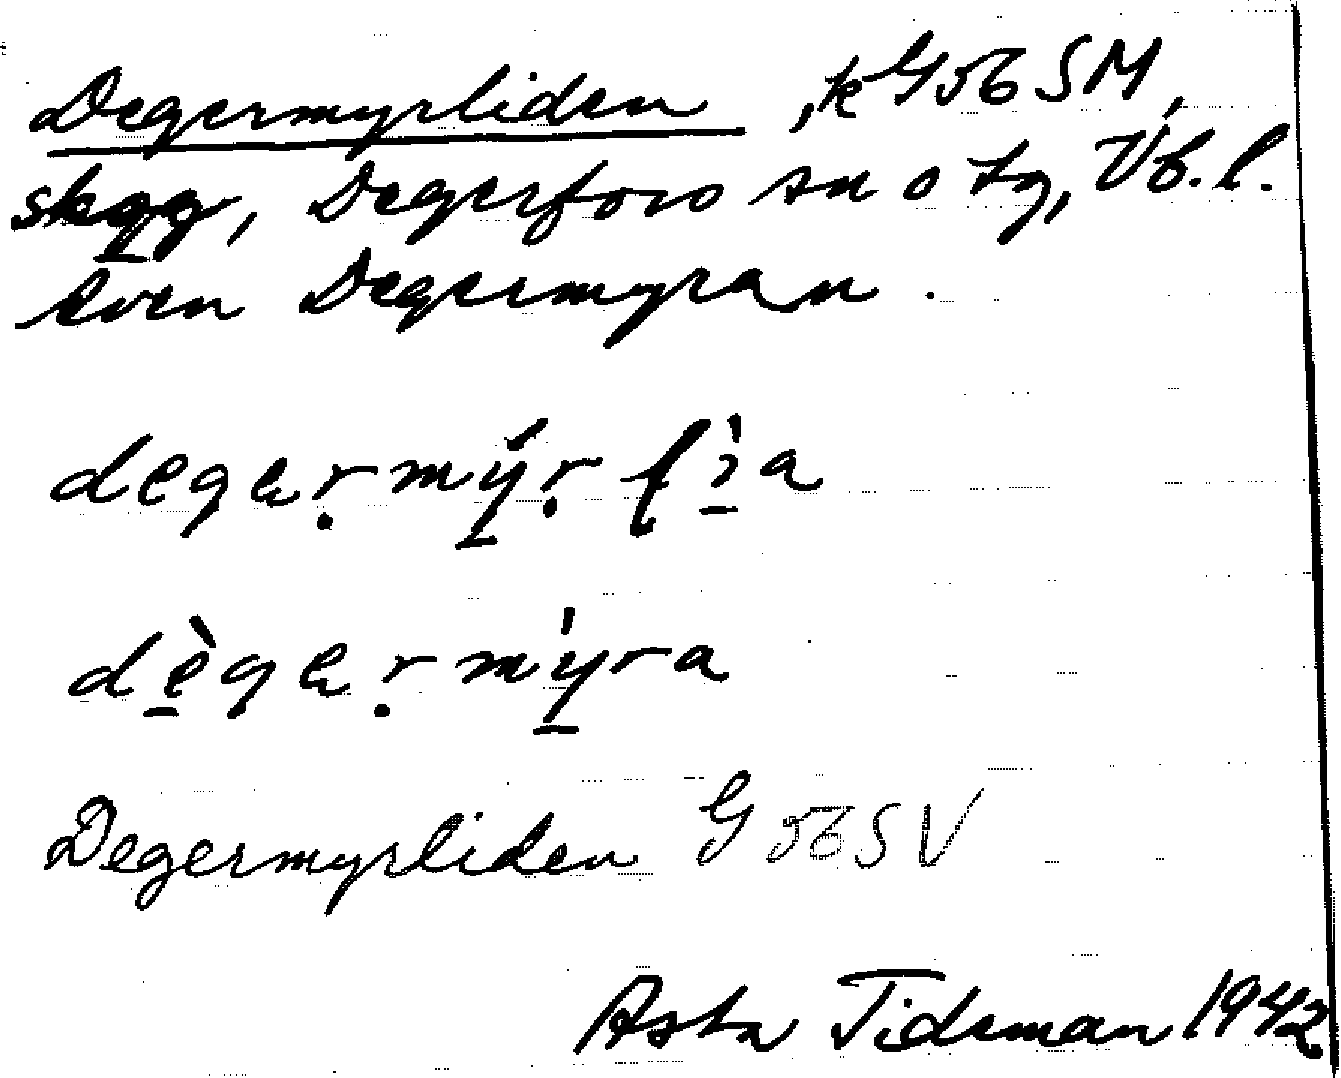 Degermyrliden , k G 56 SM,
skogg, Degerfors sn o tg, Vb. l.
även Degermyran.
degạr mýr lìa
dègạr mỳra
Degermyrliden G 56 SV
Asta Tideman 1942